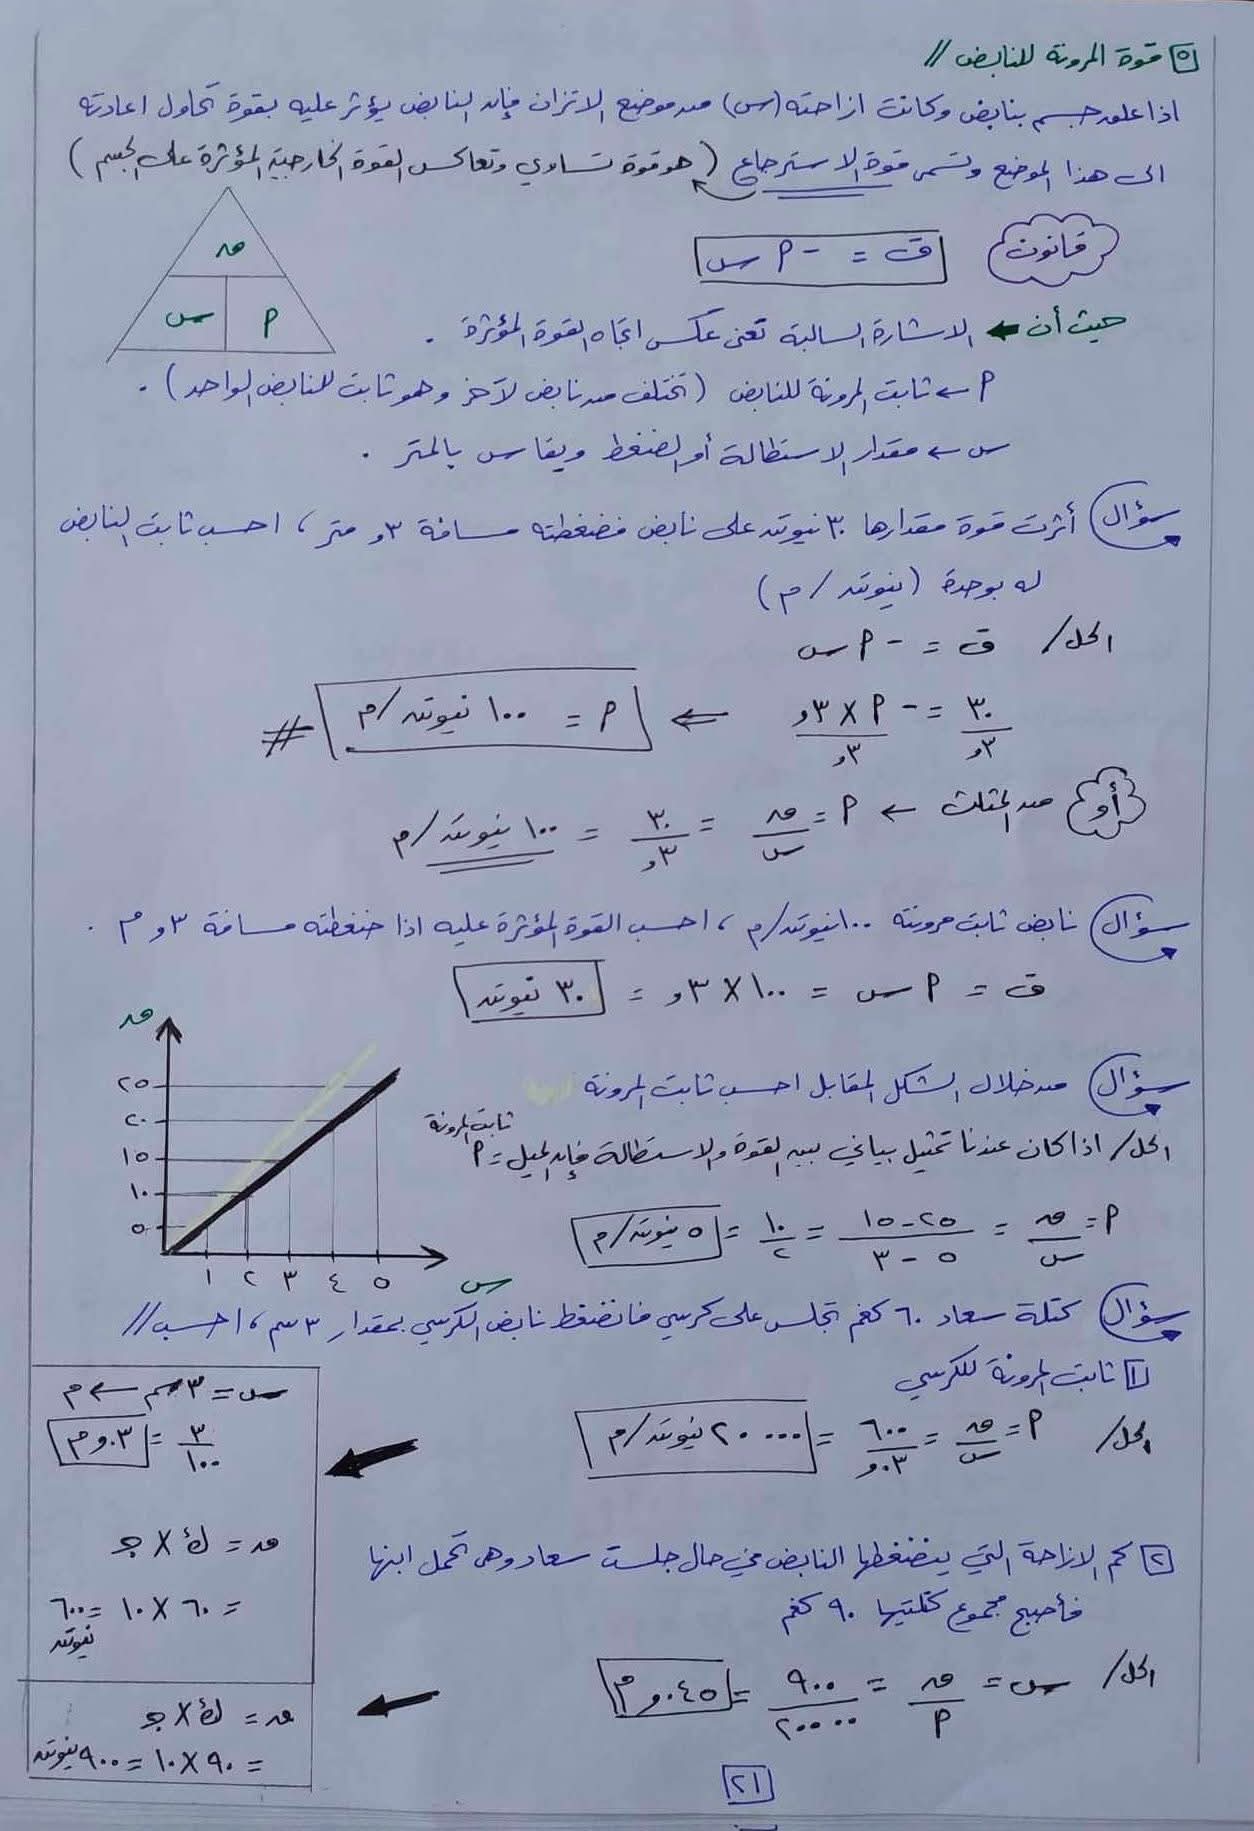 ٥ قوة المرونة للنابض //
اذا علق جسم بنابض وكانت ازاحته (س) من موضع الاتزان فإن النابض يؤثر عليه بقوة تحاول اعادته
الى هذا الموضع وتسمى قوة الاسترجاع (هو قوة تساوي وتعاكس القوة الخارجية المؤثرة على الجسم)
قانون
ق = - م س
ق
س م
حيث أن ← الاشارة السالبة تعني عكس اتجاه القوة المؤثرة .
م ← ثابت المرونة للنابض (تختلف من نابض لآخر وهو ثابت للنابض الواحد) .
س ← مقدار الاستطالة أو الضغط ويقاس بالمتر .
سؤال أثرت قوة مقدارها ٣٠ نيوتن على نابض فضغطته مسافة ٣و متر ، احسب ثابت النابض
له بوحدة (نيوتن / م)
الحل / ق = - م س
٣٠/٣و = - م X ٣و/٣و ⇐ م = ١٠٠ نيوتن/م #
أو من المثلث ← م = ق/س = ٣٠/٣و = ١٠٠ نيوتن/م
سؤال نابض ثابت مرونته ١٠٠ نيوتن/م ، احسب القوة المؤثرة عليه اذا ضغطته مسافة ٣و م .
ق = م س = ١٠٠ X ٣و = ٣٠ نيوتن
ق
٢٥
٢٠
١٥
١٠
٥
١ ٢ ٣ ٤ ٥
س
سؤال من خلال الشكل المقابل احسب ثابت المرونة
الحل / اذا كان عندنا تمثيل بياني بين القوة والاستطالة فإن الميل = م
ثابت المرونة
م = ق/س = ٢٥ - ١٥/٥ - ٣ = ١٠/٢ = ٥ نيوتن/م
سؤال كتلة سعاد ٦٠ كغم تجلس على كرسي فانضغط نابض الكرسي بمقدار ٣ سم ، احسب //
١ ثابت المرونة للكرسي
الحل / م = ق/س = ٦٠٠/٠٣و = ٢٠٠٠٠ نيوتن/م
س = ٣ سم ← م
= ٣/١٠٠ = ٠٣و م
ق = ك X جـ
= ٦٠ X ١٠ = ٦٠٠
نيوتن
٢ كم الازاحة التي ينضغطها النابض في حال جلست سعاد وهي تحمل ابنها
فأصبح مجموع كتلتيها ٩٠ كغم
الحل / س = ق/م = ٩٠٠/٢٠٠٠٠ = ٠٤٥و م
ق = ك X جـ
= ٩٠ X ١٠ = ٩٠٠ نيوتن
٢١